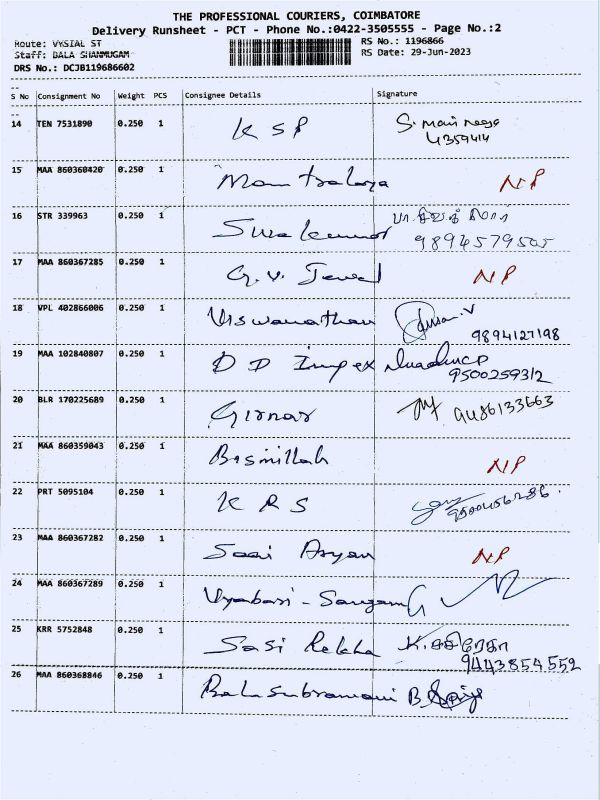 THE PROFESSIONAL COURIERS, COIMBATORE
Delivery Runsheet - PCT - Phone No.:0422-3505555 - Page No.:2
Route: VYSIAL ST
RS No.: 1196866
Staff: BALA SHANMUGAM
RS Date: 29-Jun-2023
DRS No.: DCJB119686602
S No Consignment No Weight PCS Consignee Details Signature
14 TEN 7531890 0.250 1 K S P
4359414
15 MAA 860360420 0.250 1 Mantralaya NP
16 STR 339963 0.250 1 Sivakumar
9894579505
17 MAA 860367285 0.250 1 G.V. Jewel NP
18 VPL 402866006 0.250 1 Viswanathan
9894127198
19 MAA 102840807 0.250 1 D D Impex
9500259312
20 BLR 170225689 0.250 1 Girnar 9486133663
21 MAA 860359043 0.250 1 Bismillah NP
22 PRT 5095104 0.250 1 K R S
9500456286
23 MAA 860367282 0.250 1 Saai Aryan NP
24 MAA 860367289 0.250 1 Vyabari - Sangam
25 KRR 5752848 0.250 1 Sasi Rekha K.சசிரேகா
9443854552
26 MAA 860368846 0.250 1 Balasubramani